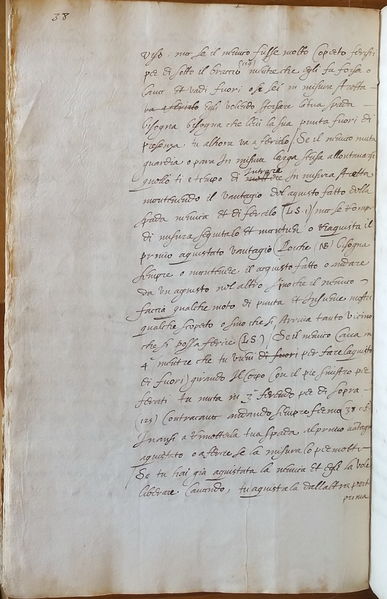 38
viso. ma se il nemico fusse molto scoperto ferirsi
per di sotto il braccio mentre che egli fa forza o
cava et vadi fuori, o se sei in misura stretta
va a ferirlo egli volendo sforzare la tua spada
bisogna che levi la sua punta fuori di
presenza tu alhora va a ferirlo / Se il nemico muta
guardia o para in misura larga o si allontana
quello ti è tempo di entrare in misura stretta
mantenendo il vantagio del aquisto fatto della
spada nemica et di ferirlo (LS.1) ma se rompe
di misura seguitalo et mantene o riaquista il
primo aquistato vantagio (Perche (18) bisogna
sempre o mantener il aquisto fatto o andare
da un aquisto nel altro sino che il nemico
faccia qualche moto di punta et insieme resti
qualche scopato o sino che si arriva tanto vicino
che si possa ferire (LS) Se il nemico cava in
4 mentre che tu vieni di fuori per far l'aquisto
di fuori, girando il corpo con il pie sinistro per
ferirti tu muta in 3ª ferendo per di sopra
(125) Contracavar andando sempre fermo 38 et
inanzi a rimetter la tua spada al primo vantagio
aquistato o a ferire se la misura lo permette
Se tu hai già aquistata la nemica et egli la vole
liberare cavando, tu aquistala dall'altra parte
prima